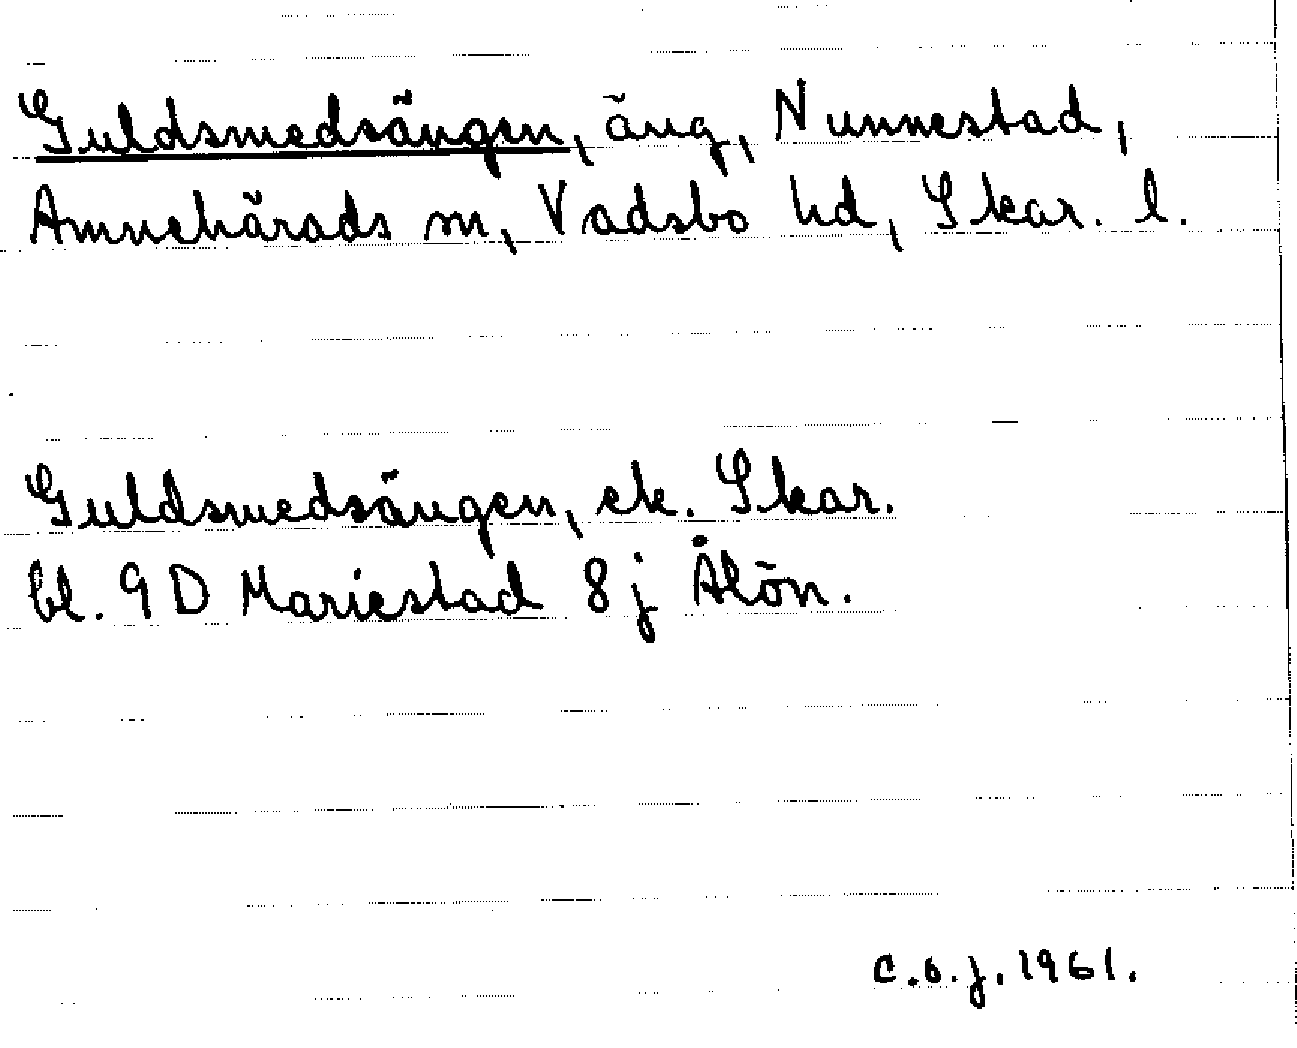 Guldsmedsängen, äng, Nunnestad,
Amnehärads sn, Vadsbo hd, Skar. l.
Guldsmedsängen, ek. Skar.
bl. 9 D Mariestad 8 j Ålön.
C.O.J. 1961.